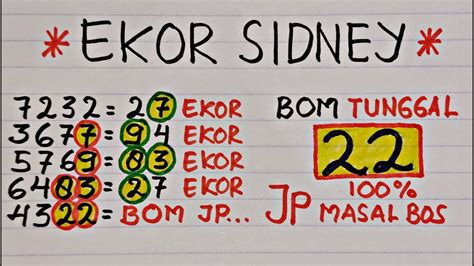 * EKOR SIDNEY *
7232 = 27 EKOR
3677 = 94 EKOR
5769 = 03 EKOR
6403 = 27 EKOR
4322 = BOM JP...
BOM TUNGGAL
22
100%
JP MASAL BOS